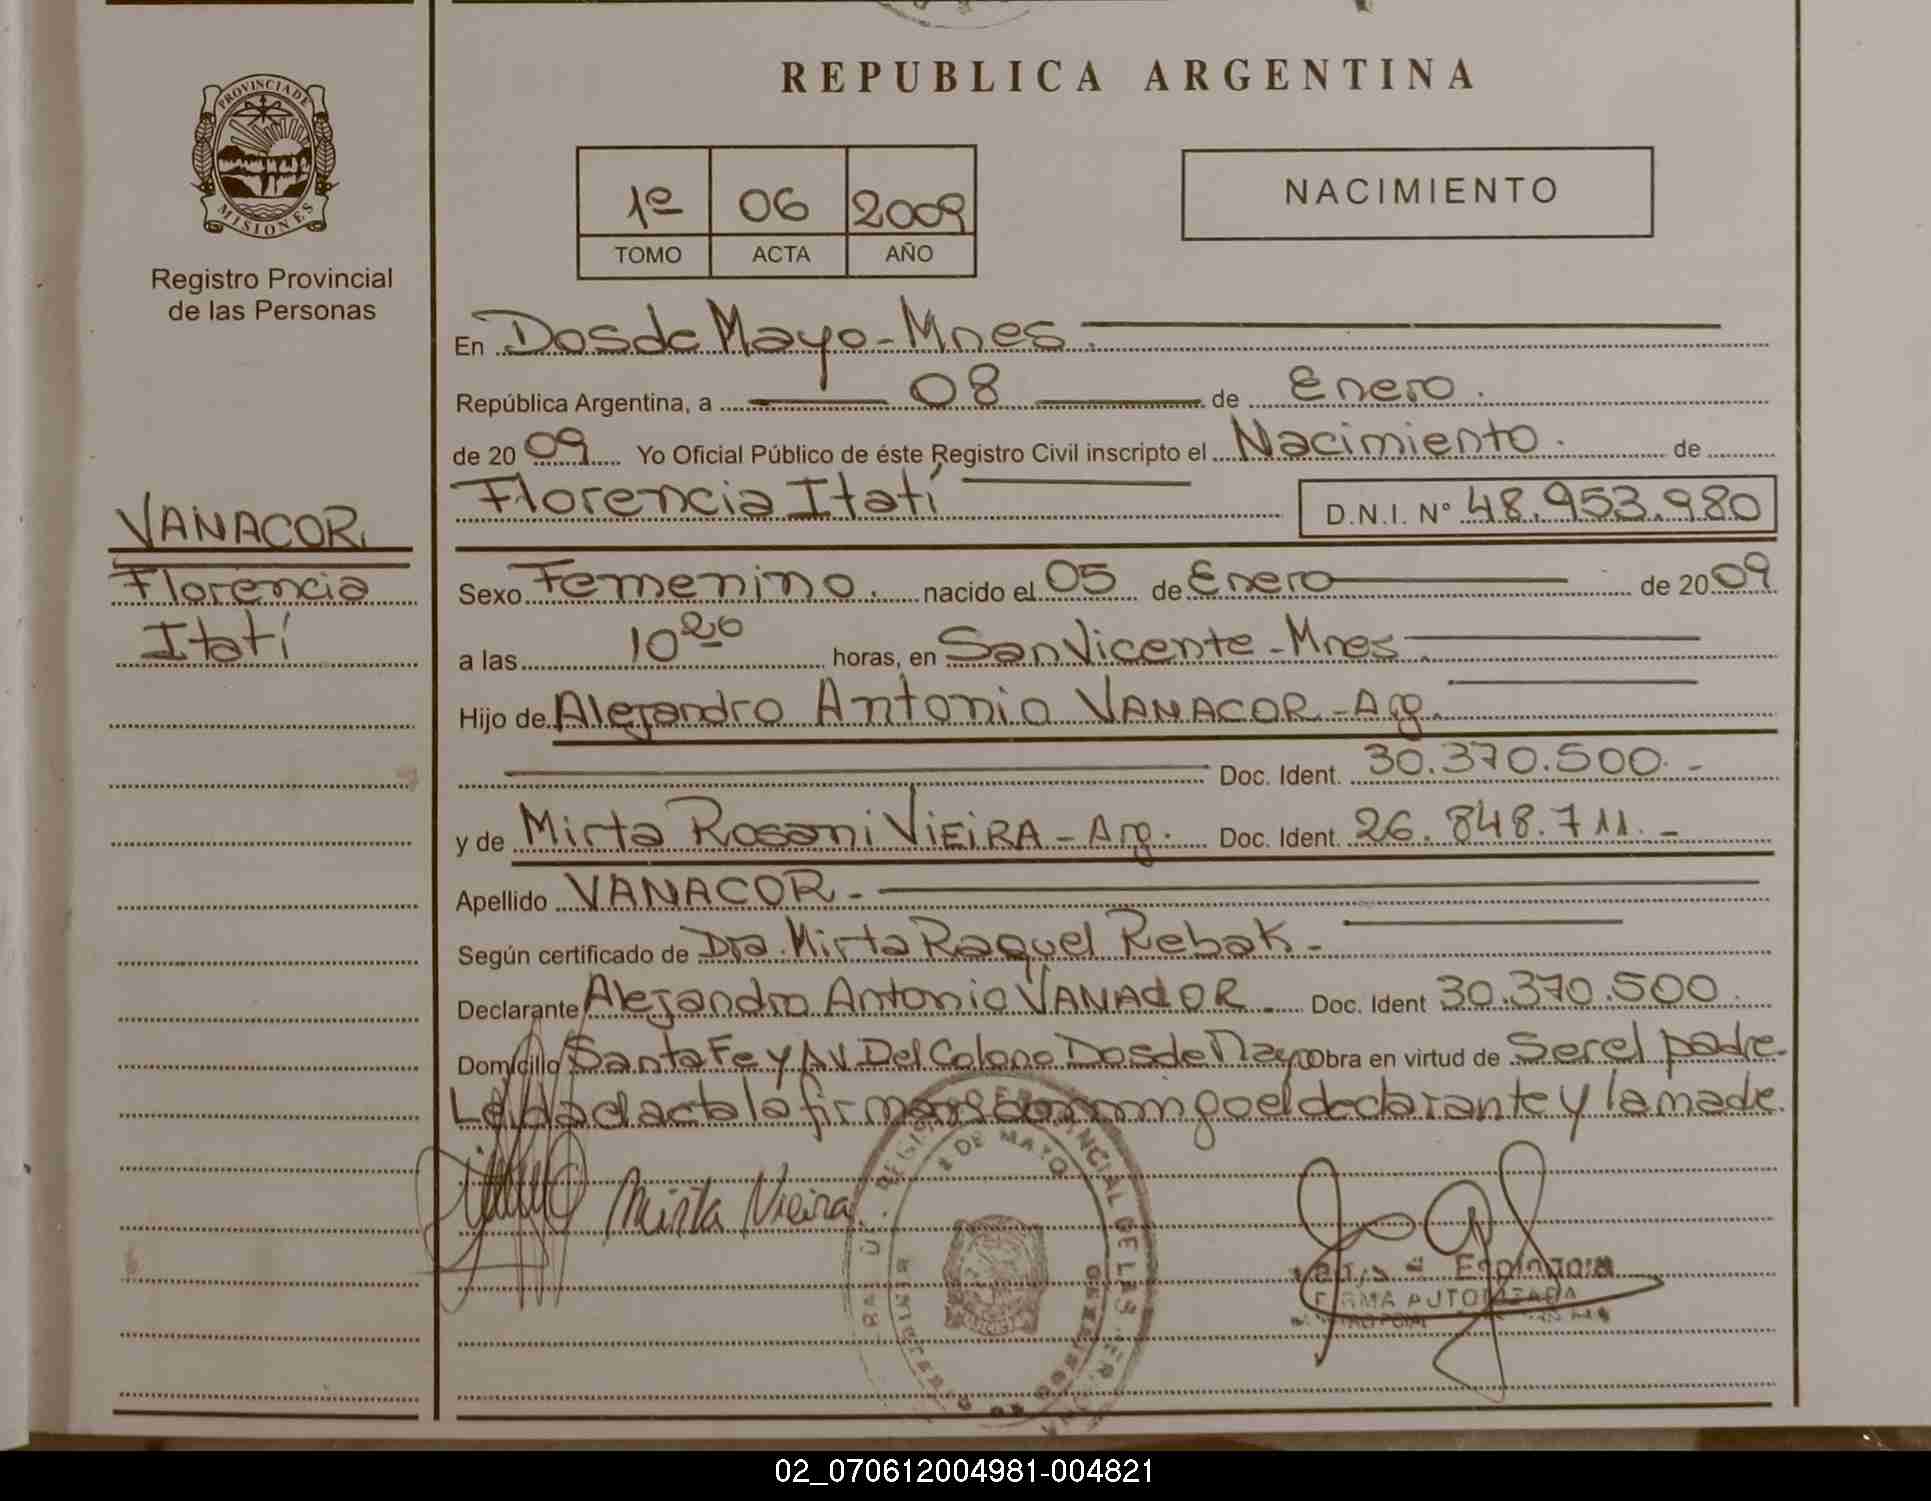 REPUBLICA ARGENTINA
PROVINCIA DE
MISIONES
Registro Provincial
de las Personas
1º 06 2009
TOMO ACTA AÑO
NACIMIENTO
En Dos de Mayo - Mnes.
República Argentina, a 08 de Enero.
de 2009 Yo Oficial Público de éste Registro Civil inscripto el Nacimiento. de
Florencia Itatí D.N.I. N° 48.953.980
VANACOR
Florencia
Itatí
Sexo Femenino. nacido el 05 de Enero de 2009
a las 10 20 horas, en San Vicente - Mnes.
Hijo de Alejandro Antonio VANACOR - Arg.
Doc. Ident. 30.370.500. -
y de Mirta Rosani VIEIRA - Arg. Doc. Ident. 26.848.711. -
Apellido VANACOR -
Según certificado de Dra. Mirta Raquel Rebak -
Declarante Alejandro Antonio VANACOR. Doc. Ident 30.370.500.
Domicilio Santa Fe y AV. Del Colono Dos de Mayo Obra en virtud de Ser el padre.
Leída el acta la firman conmigo el declarante y la madre.
Mirta Vieira
2 DE MAYO
Espíndola
FIRMA AUTORIZADA
02_070612004981-004821